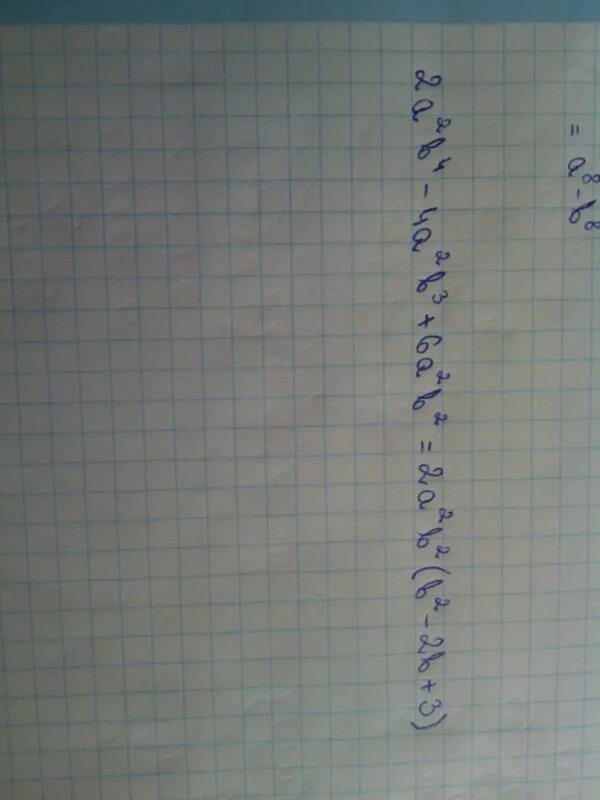 = a⁸ - b⁸
2a²b⁴ - 4a²b³ + 6a²b² = 2a²b²(b² - 2b + 3)